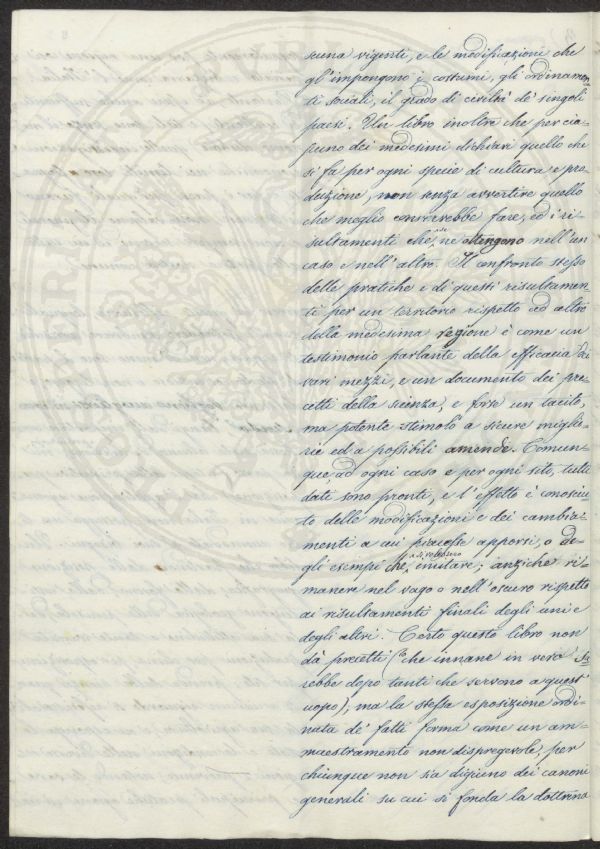 scuna vigenti, e le modificazioni che
gl'impongono i costumi, gli ordinamen
ti sociali, il grado di civiltà de' singoli
paesi. Un libro inoltre che per cia-
scuno dei medesimi dichiari quello che
si fa per ogni specie di cultura e pro-
duzione, non senza avvertire quello
che meglio converrebbe fare, ed i ri-
sultamenti che se ne ottengono nell'un
caso e nell'altro. Il confronto stesso
delle pratiche e di questi risultamen-
ti per un territorio rispetto ad altro
della medesima regione è come un
testimonio parlante della efficacia dei
vari mezzi, e un documento dei pre-
cetti della scienza, e forse un tacito,
ma potente stimolo a sicure miglio-
rie ed a possibili amende. Comun-
que, ad ogni caso e per ogni sito, tutti
dati sono pronti, e l'effetto è conosciu
to delle modificazioni e dei cambia-
menti a cui piacesse apporsi, o de-
gli esempi che si volessero emulare; anzichè ri-
manere nel vago o nell'oscuro rispetto
ai risultamenti finali degli uni e
degli altri. Certo questo libro non
dà precetti (che innane in vero sa
rebbe dopo tanti che servono a quest'
uopo), ma la stessa esposizione ordi-
nata de' fatti forma come un am-
maestramento non dispregevole, per
chiunque non sia digiuno dei canoni
generali su cui si fonda la dottrina